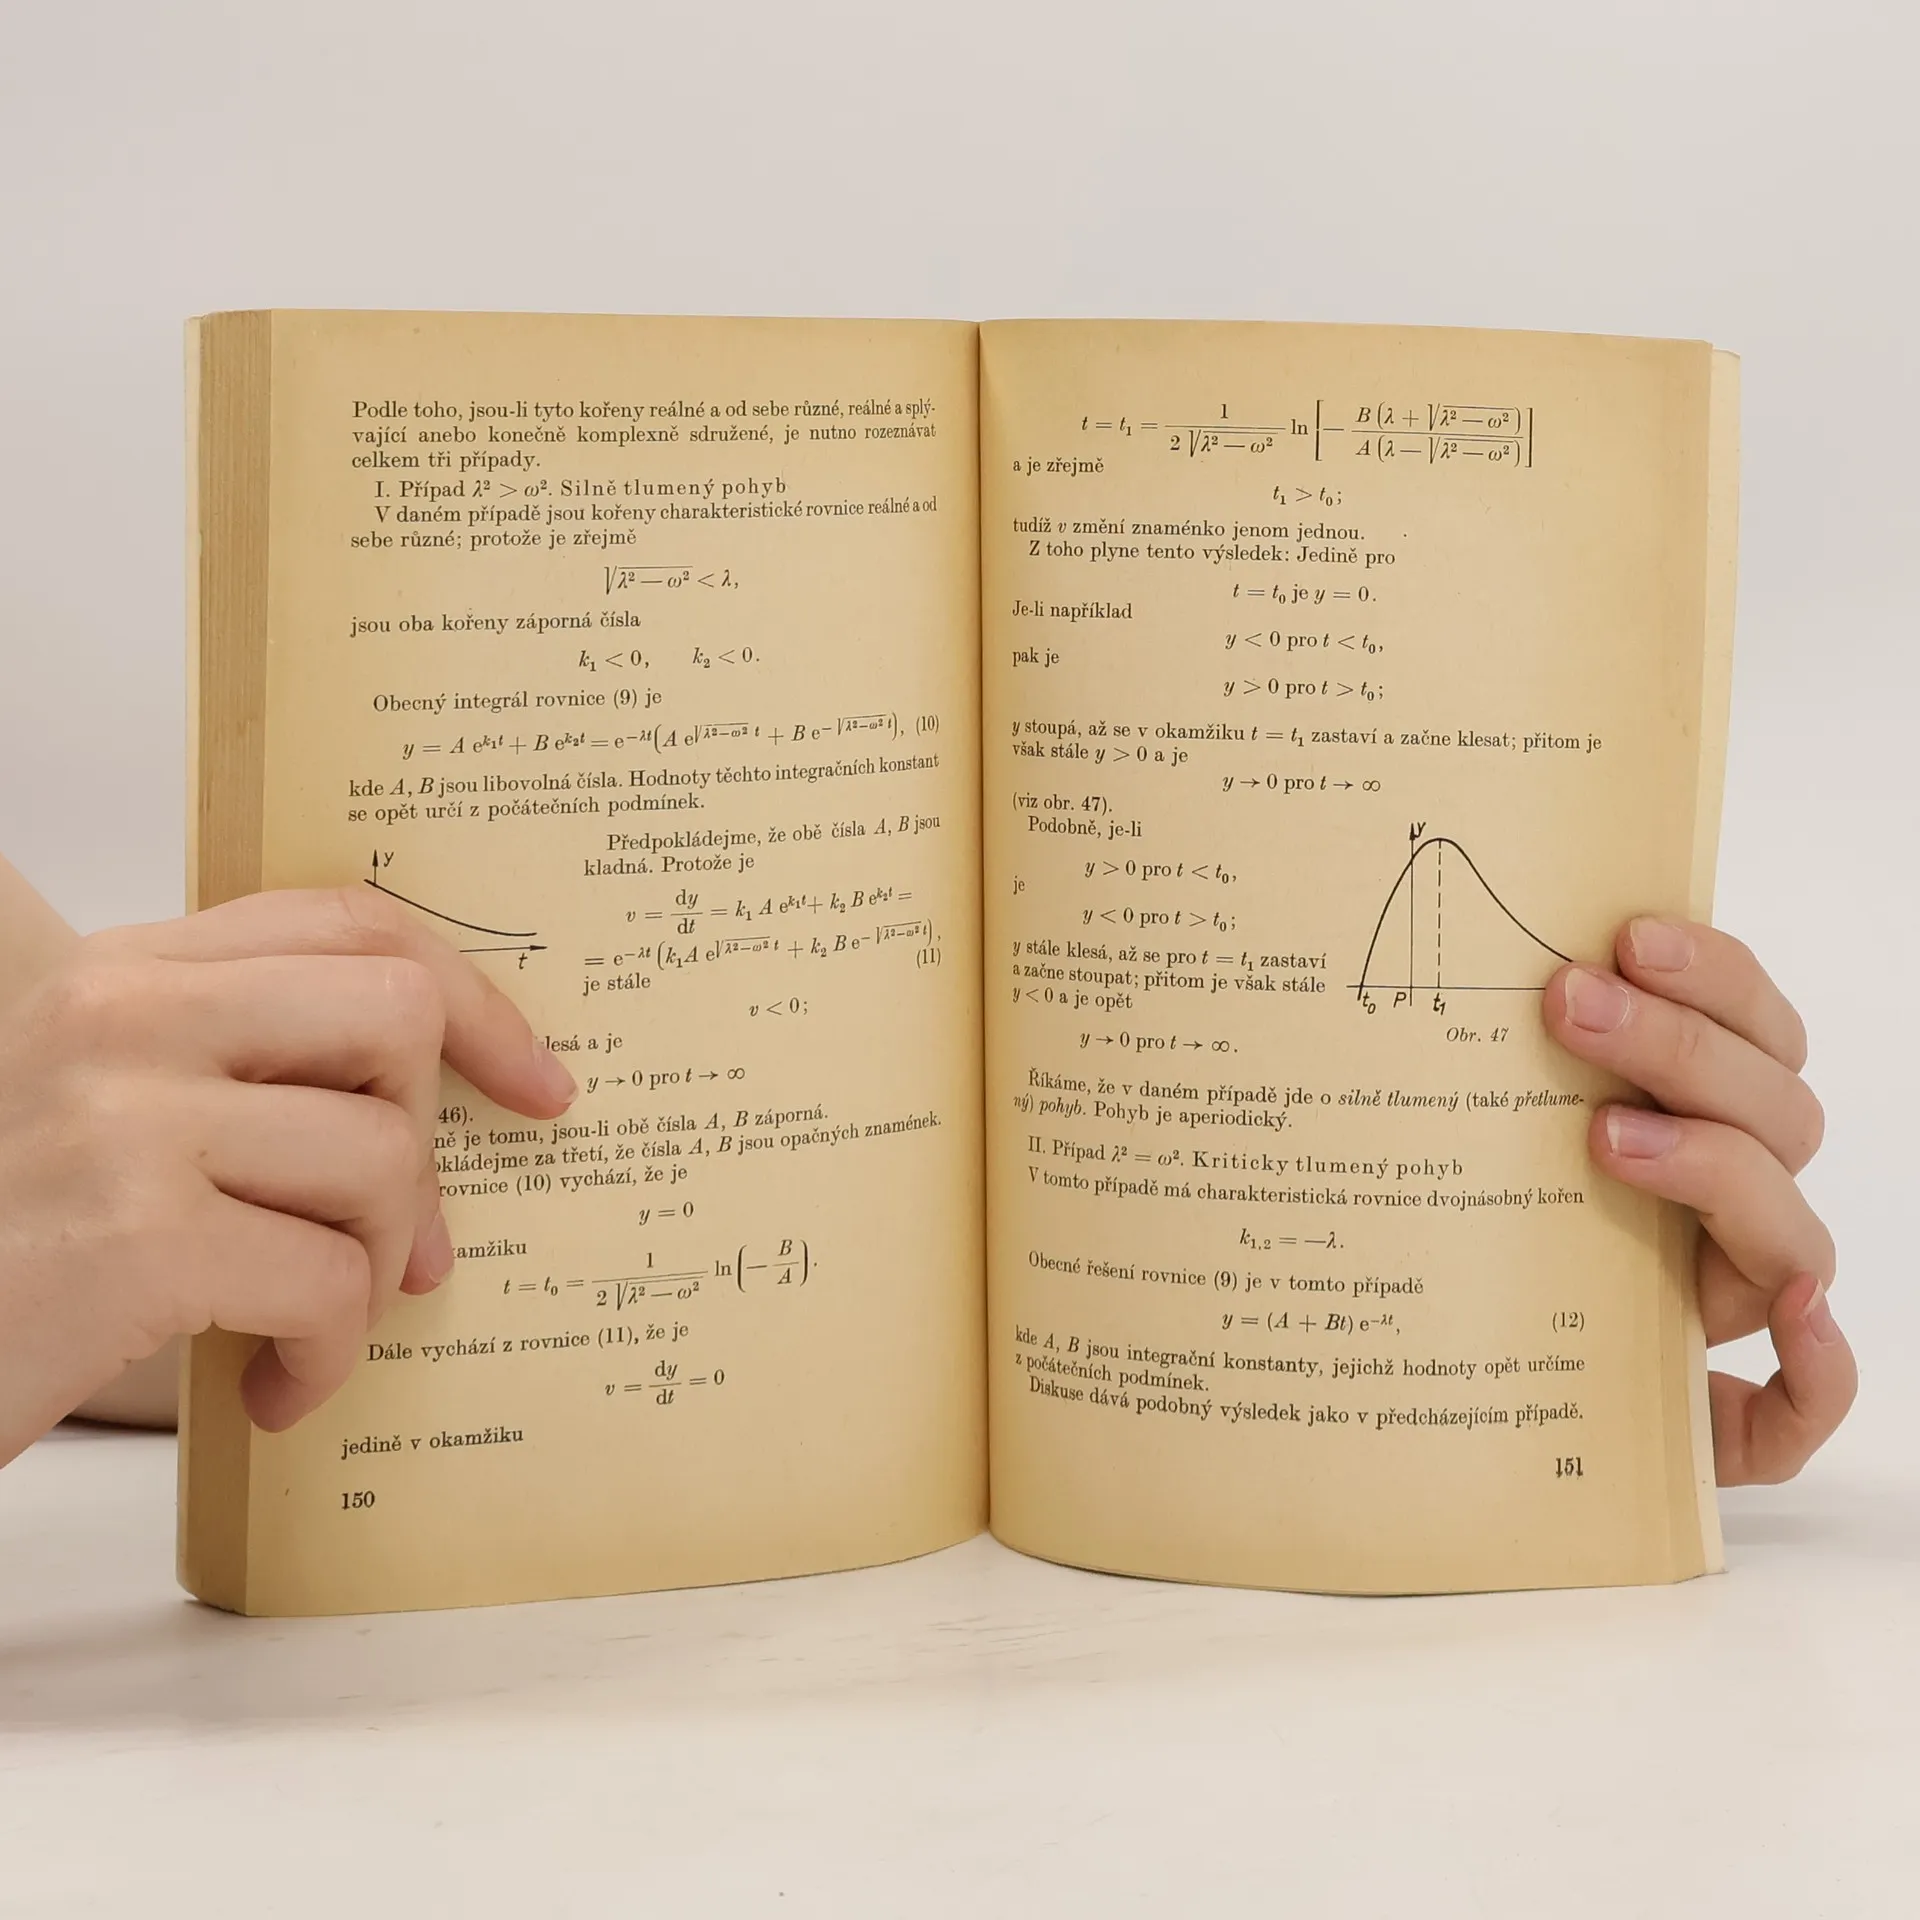 Podle toho, jsou-li tyto kořeny reálné a od sebe různé, reálné a splý-
vající anebo konečně komplexně sdružené, je nutno rozeznávat
celkem tři případy.
I. Případ λ² > ω². Silně tlumený pohyb
V daném případě jsou kořeny charakteristické rovnice reálné a od
sebe různé; protože je zřejmě
√(λ² — ω²) < λ,
jsou oba kořeny záporná čísla
k₁ < 0, k₂ < 0.
Obecný integrál rovnice (9) je
y = A e^(k₁t) + B e^(k₂t) = e^(−λt) (A e^(√(λ²−ω²) t) + B e^(−√(λ²−ω²) t)), (10)
kde A, B jsou libovolná čísla. Hodnoty těchto integračních konstant
se opět určí z počátečních podmínek.
Předpokládejme, že obě čísla A, B jsou
kladná. Protože je
v = dy/dt = k₁ A e^(k₁t) + k₂ B e^(k₂t) =
= e^(−λt) (k₁A e^(√(λ²−ω²) t) + k₂ B e^(−√(λ²−ω²) t)),
(11)
je stále
v < 0;
y
t
a je
y → 0 pro t → ∞
46).
je tomu, jsou-li obě čísla A, B záporná.
za třetí, že čísla A, B jsou opačných znamének.
rovnice (10) vychází, že je
y = 0
t = t₀ = 1/(2 √(λ² — ω²)) ln (— B/A).
Dále vychází z rovnice (11), že je
v = dy/dt = 0
jedině v okamžiku
150
t = t₁ = 1/(2 √(λ² — ω²)) ln [— B (λ + √(λ² — ω²))/A (λ — √(λ² — ω²))]
a je zřejmě
t₁ > t₀;
tudíž v změní znaménko jenom jednou.
Z toho plyne tento výsledek: Jedině pro
t = t₀ je y = 0.
Je-li například
y < 0 pro t < t₀,
pak je
y > 0 pro t > t₀;
y stoupá, až se v okamžiku t = t₁ zastaví a začne klesat; přitom je
však stále y > 0 a je
y → 0 pro t → ∞
(viz obr. 47).
Podobně, je-li
y > 0 pro t < t₀,
je
y < 0 pro t > t₀;
y stále klesá, až se pro t = t₁ zastaví
a začne stoupat; přitom je však stále
y < 0 a je opět
y → 0 pro t → ∞.
y
t₀ P t₁
Obr. 47
Říkáme, že v daném případě jde o silně tlumený (také přetlume-
ný) pohyb. Pohyb je aperiodický.
II. Případ λ² = ω². Kriticky tlumený pohyb
V tomto případě má charakteristická rovnice dvojnásobný kořen
k₁,₂ = —λ.
Obecné řešení rovnice (9) je v tomto případě
y = (A + Bt) e^(−λt), (12)
kde A, B jsou integrační konstanty, jejichž hodnoty opět určíme
z počátečních podmínek.
Diskuse dává podobný výsledek jako v předcházejícím případě.
151